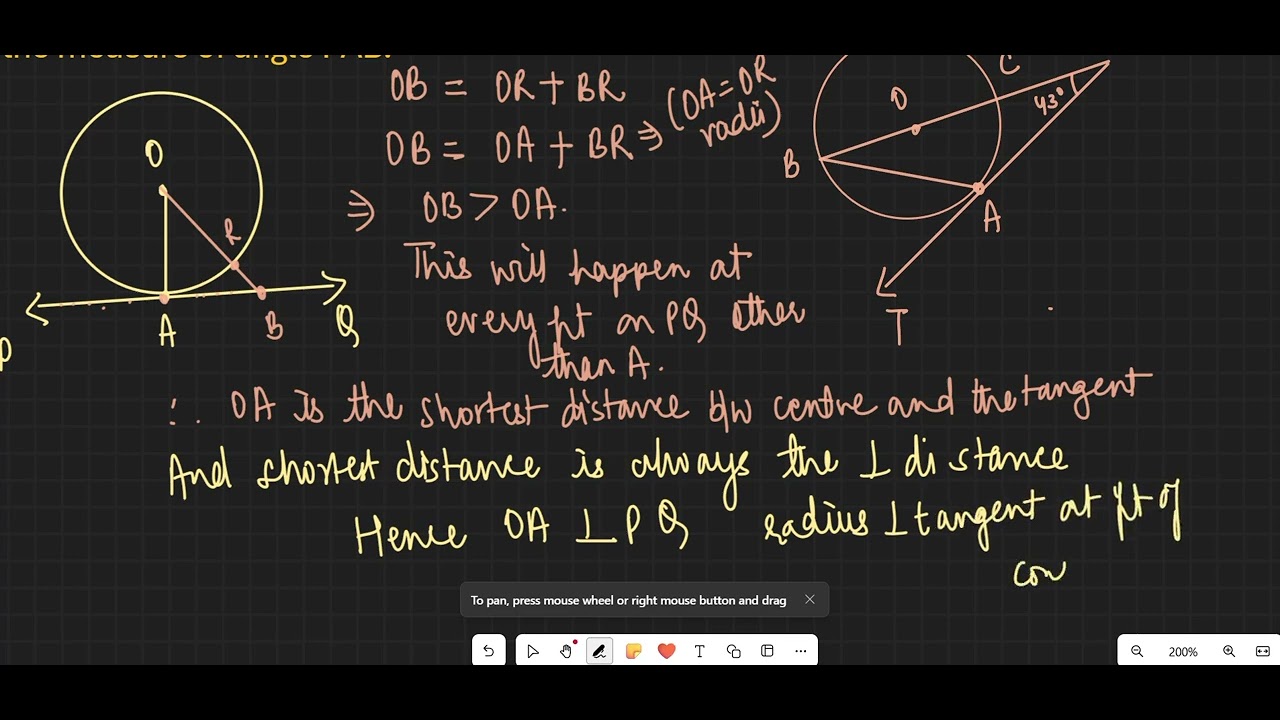 the measure of angle PAB.
OB = OR + BR
(OA = OR
radii)
OB = OA + BR ⇒
⇒ OB > OA.
This will happen at
every pt on PQ other
than A.
∴ OA is the shortest distance b/w centre and the tangent
And shortest distance is always the ⊥ distance
Hence OA ⊥ PQ
radius ⊥ tangent at pt of
con
O
R
A
B
Q
P
C
43°
O
B
A
T
To pan, press mouse wheel or right mouse button and drag
T
200%